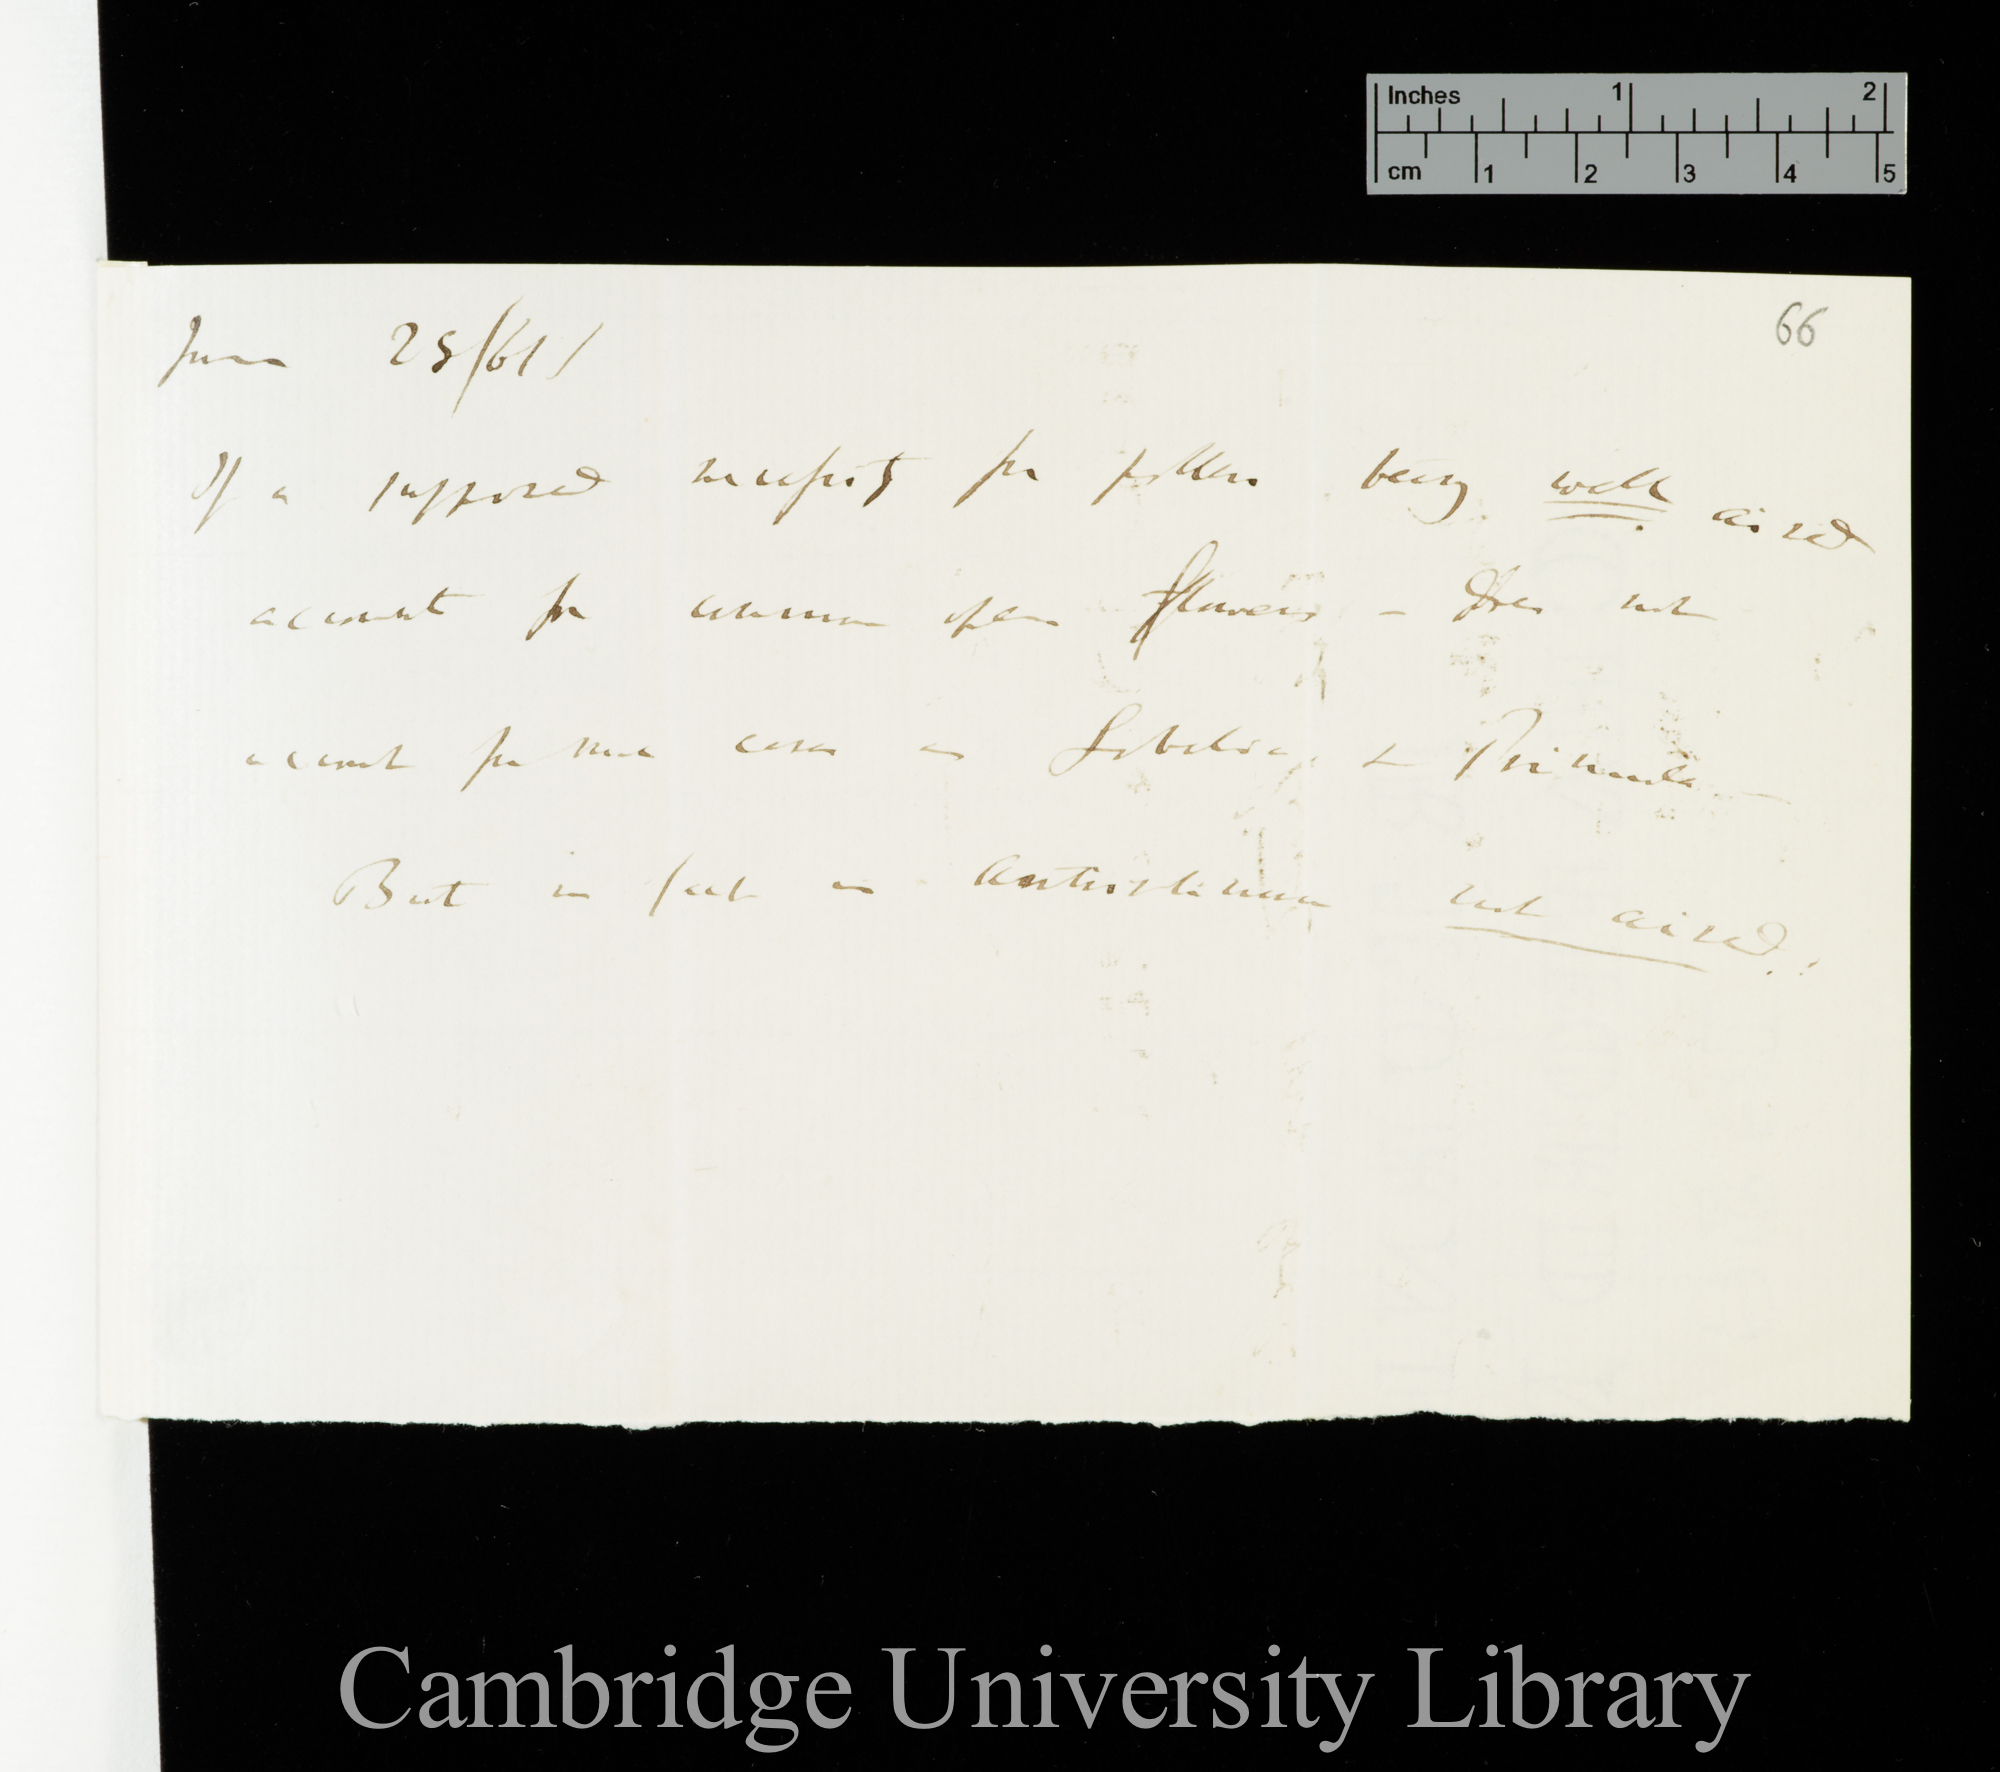 Inches 1 2
cm 1 2 3 4 5
66
June 25/61/
If a supposed necessity for pollen being well aired
account for common open flowers — Does not
account for such cases as Lobelia, & Primula —
But in fact in Antirrhinum not aired!
Cambridge University Library